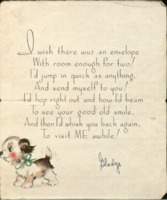 I wish there was an envelope
With room enough for two!
I'd jump in quick as anything,
And send myself to you!
I'd hop right out and how I'd beam
To see your good old smile,
And then I'd whisk you back again,
To visit ME awhile!
Gladys